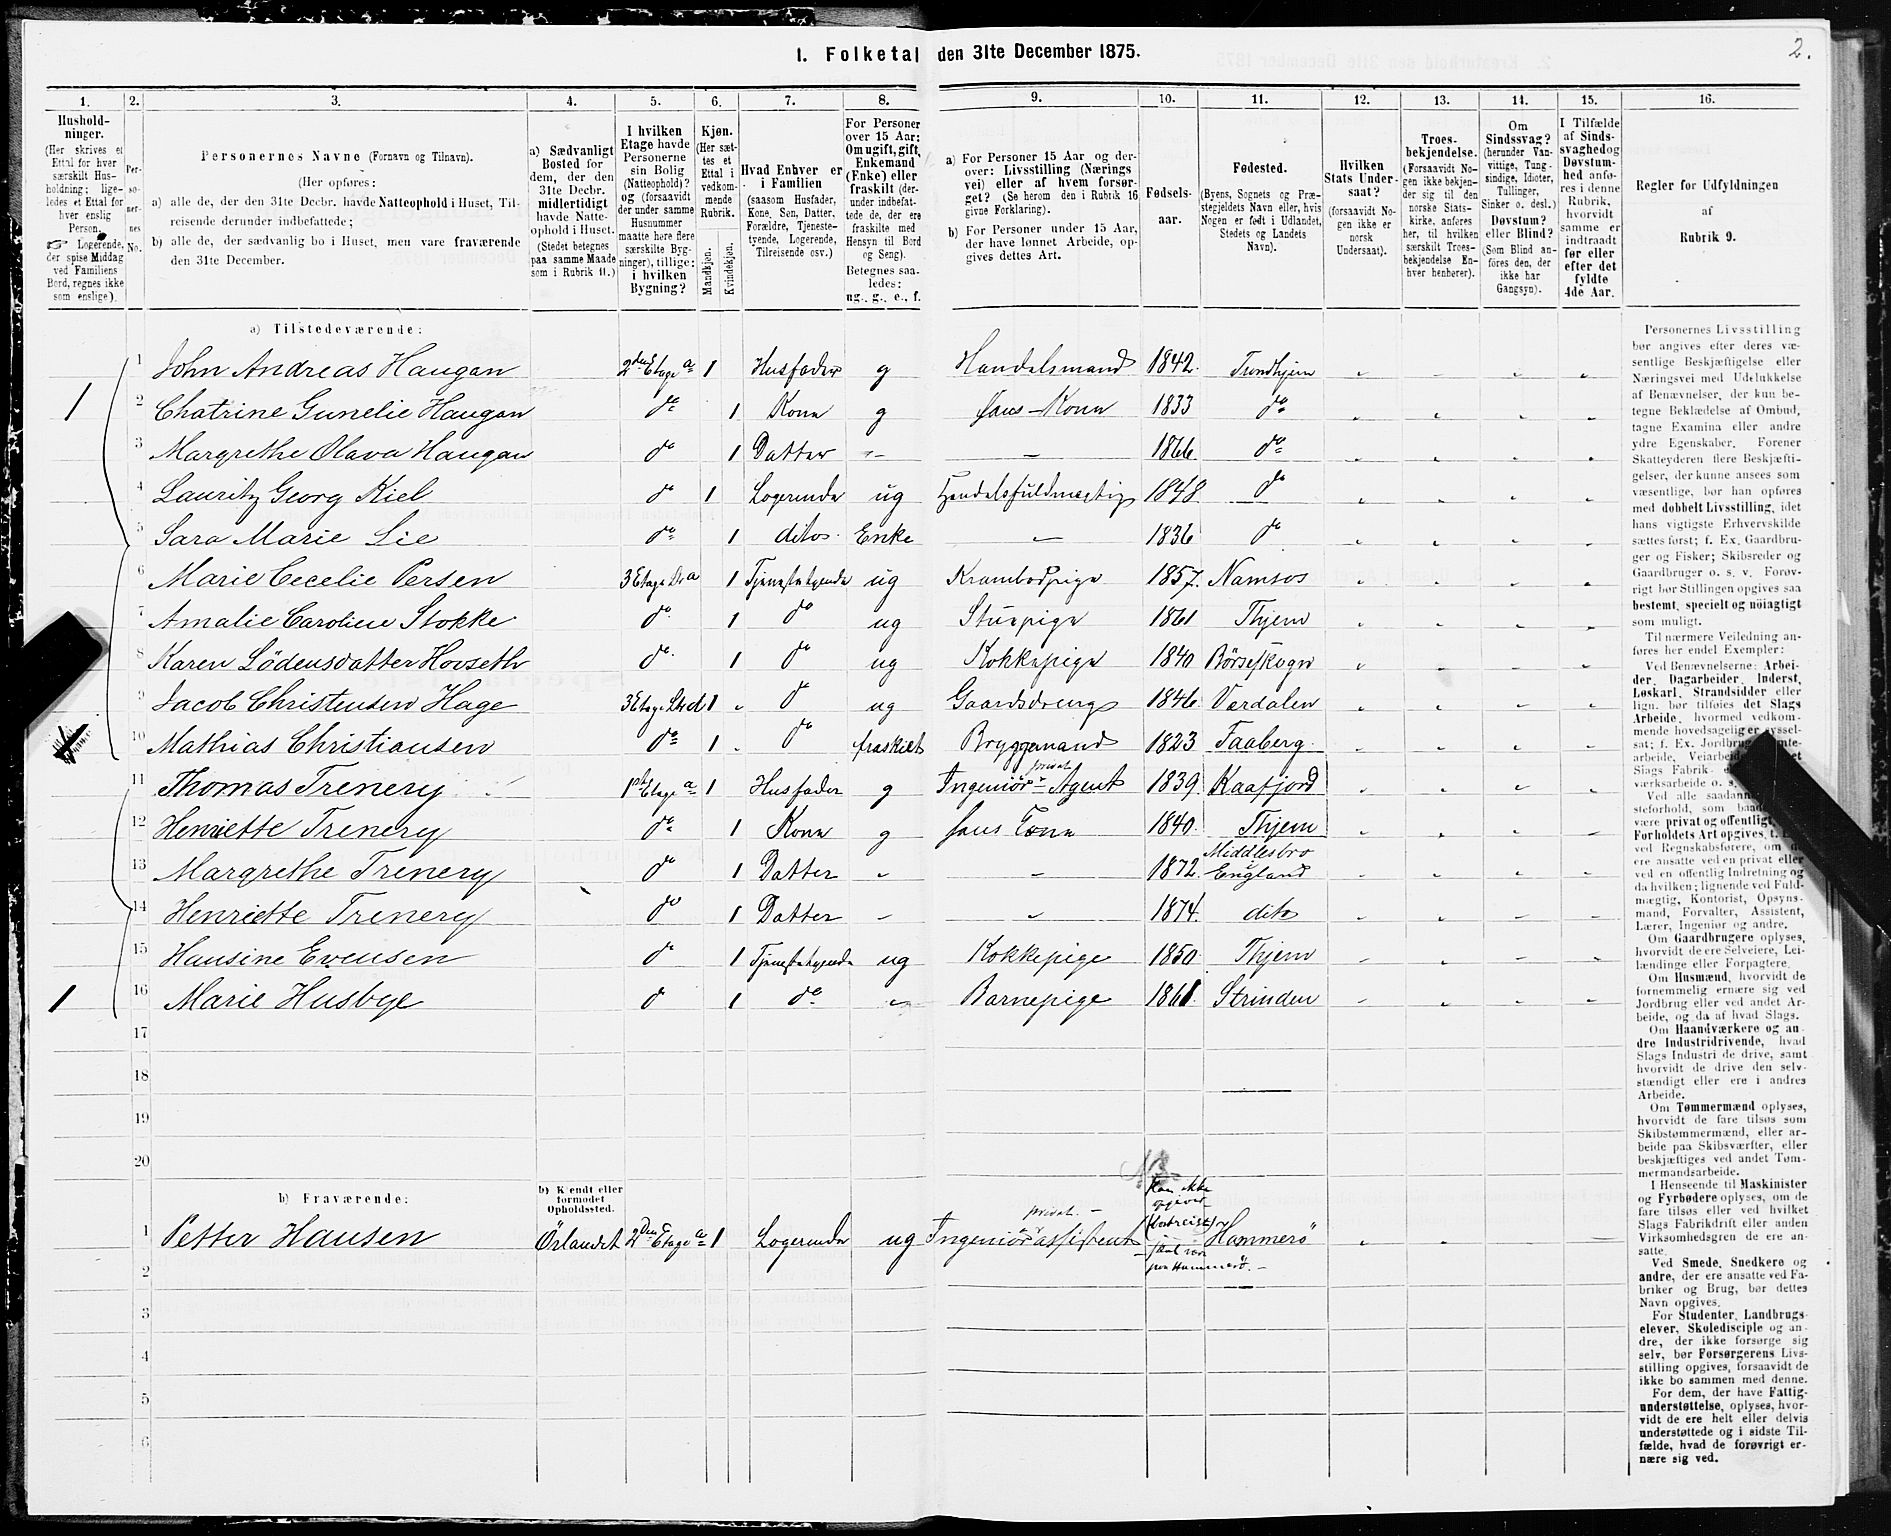 1. Folketal den 31te December 1875.
2.
1. 2. 3. 4. 5. 6. 7. 8. 9. 10. 11. 12. 13. 14. 15. 16.
Hushold-
ninger.
(Her skrives et
Ettal for hver
særskilt Hus-
holdning; lige-
ledes et Ettal for
hver enslig
Person.
☞ Logerende,
der spise Middag
ved Familiens
Bord, regnes ikke
som enslige).
Per-
so-
ner-
nes
No.
Personernes Navne (Fornavn og Tilnavn).
(Her opføres:
a) alle de, der den 31te Decbr. havde Natteophold i Huset, Til-
reisende derunder indbefattede;
b) alle de, der sædvanlig bo i Huset, men vare fraværende
den 31te December.
a) Sædvanligt
Bosted for
dem, der den
31te Decbr.
midlertidigt
havde Natte-
ophold i Huset.
(Stedet betegnes
paa samme Maade
som i Rubrik 11.)
I hvilken
Etage havde
Personerne
sin Bolig
(Natteophold)?
og (forsaavidt
der under samme
Husnummer
maatte høre flere
særskilte Byg-
ninger), tillige:
i hvilken
Bygning?
Kjøn.
(Her sæt-
tes et
Ettal i
vedkom-
mende
Rubrik.
Mandkjøn. Kvindekjøn.
Hvad Enhver er
i Familien
(saasom Husfader,
Kone, Søn, Datter,
Forældre, Tjeneste-
tyende, Logerende,
Tilreisende osv.)
For Personer
over 15 Aar:
Om ugift, gift,
Enkemand
(Enke) eller
fraskilt (der-
under indbefat-
tede de, der ere
fraskilte med
Hensyn til Bord
og Seng).
Betegnes saa-
ledes:
ug., g., e., f.
a) For Personer 15 Aar og der-
over: Livsstilling (Nærings
vei) eller af hvem forsør-
get? (Se herom den i Rubrik 16
givne Forklaring).
b) For Personer under 15 Aar,
der have lønnet Arbeide, op-
gives dettes Art.
Fødsels-
aar.
Fødested.
(Byens, Sognets og Præ-
stegjeldets Navn eller, hvis
Nogen er født i Udlandet,
Stedets og Landets
Navn).
Hvilken
Stats Under-
saat?
(forsaavidt No-
gen ikke er
norsk
Undersaat).
Troes-
bekjendelse.
(Forsaavidt No-
gen ikke bekjen-
der sig til den
norske Stats-
kirke, anføres
her, til hvilken
særskilt Troes-
bekjendelse En-
hver henhører).
Om
Sindssvag?
(herunder Van-
vittige, Tung-
sindige, Idioter,
Tullinger,
Sinker o. desl.)
Døvstum?
eller Blind?
(Som Blind an-
føres den, der
ikke har
Gangsyn).
I Tilfælde
af Sinds-
svaghed og
Døvstum-
hed anfø-
res i denne
Rubrik,
hvorvidt
samme er
indtraadt
før eller
efter det
fyldte
4de Aar.
Regler for Udfyldningen
af
Rubrik 9.
a) Tilstedeværende:
1 John Andreas Haugan 2den Etage a 1 Husfader g Handelsmand 1842 Trondhjem
1 2 Chatrine Gunelie Haugan do 1 Kone g hans Kone 1833 do
3 Margrethe Olava Haugan do 1 Datter 1866 do
4 Lauritz Georg Kiel do 1 Logerende ug Handelsfuldmægtig 1848 do
5 Sara Marie Lie do 1 ditos Enke 1836 do
6 Marie Cecelie Persen 3 Etage a 1 Tjenestetyende ug Krambodpige 1857 Namsos
7 Amalie Caroline Stokke do 1 do ug Stuepige 1861 Thjem
8 Karen Lödensdatter Hovseth do 1 do ug Kokkepige 1840 Börseskogn
9 Jacob Christensen Hage 3 Etage d 1 do ug Gaardsdreng 1846 Værdalen
10 Mathias Christiansen do 1 do fraskilt Bryggemand 1823 Faaberg
11 Thomas Trenery 1ste Etage a 1 Husfader g Ingeniör privat Agent 1839 Kaafjord
12 Henriette Trenery do 1 Kone g hans Kone 1840 Thjem
13 Margrethe Trenery do 1 Datter 1872 Middlesbro England
14 Henriette Trenery do 1 Datter 1874 dito
15 Hansine Evensen do 1 Tjenestetyende ug Kokkepige 1850 Thjem
1 16 Marie Husbye do 1 do Barnepige 1861 Strinden
17
18
19
20
b) Fraværende:
b) Kjendt eller
formodet
Opholdssted.
NB
Kan ikke
opgives
1 Petter Hansen Örlandet 2den Etage a 1 Logerende ug Ingeniör assistent privat Hammerö
2
3
4
5
6
Personernes Livsstilling
bør angives efter deres væ-
sentlige Beskjæftigelse eller
Næringsvei med Udelukkelse
af Benævnelser, der kun be-
tegne Beklædelse af Ombud,
tagne Examina eller andre
ydre Egenskaber. Forener
Skatteyderen flere Beskjæfti-
gelser, der kunne ansees som
væsentlige, bør han opføres
med dobbelt Livsstilling, idet
hans vigtigste Erhvervskilde
sættes først; f. Ex. Gaardbru-
ger og Fisker; Skibsreder og
Gaardbruger o. s. v. Forøv-
rigt bør Stillingen opgives saa
bestemt, specielt og nöiagtigt
som muligt.
Til nærmere Veiledning an-
føres her endel Exempler:
Ved Benævnelserne: Arbei-
der, Dagarbeider, Inderst,
Løskarl, Strandsidder eller
lign. bør tilføies det Slags
Arbeide, hvormed vedkom-
mende hovedsagelig er syssel-
sat; f. Ex. Jordbrug
arbeide, Veiarbeide
Slags Fabrik-
værksarbeide o. s.
Ved alle saadan
steforhold, som baade
være privat og offentligt,
Forholdets Art opgives, t.
ved Regnskabsførere, om de
ere ansatte ved en privat eller
ved en offentlig Indretning og
da hvilken; lignende ved Fuld-
mægtig, Kontorist, Opsyns-
mand, Forvalter, Assistent,
Lærer, Ingeniør og andre.
Om Gaardbrugere oplyses,
hvorvidt de ere Selveiere, Lei-
lændinge eller Forpagtere.
Om Husmænd, hvorvidt de
fornemmelig ernære sig ved
Jordbrug eller ved andet Ar-
beide, og da af hvad Slags.
Om Haandværkere og an-
dre Industridrivende, hvad
Slags Industri de drive, samt
hvorvidt de drive den selv-
stændigt eller ere i andres
Arbeide.
Om Tømmermænd oplyses,
hvorvidt de fare tilsøs som
Skibstømmermænd, eller ar-
beide paa Skibsværfter, eller
beskjæftiges ved andet Tøm-
mermandsarbeide.
I Henseende til Maskinister
og Fyrbødere oplyses, om de
fare tilsøs eller ved hvilket
Slags Fabrikdrift eller anden
Virksomhedsgren de ere an-
satte.
Ved Smede, Snedkere og
andre, der ere ansatte ved Fa-
briker og Brug, bør dettes
Navn opgives.
For Studenter, Landbrugs-
elever, Skoledisciple og an-
dre, der ikke forsørge sig
selv, bør Forsørgerens Livs-
stilling opgives, forsaavidt de
ikke bo sammen med denne.
For dem, der have Fattig-
understøttelse, oplyses, hvor-
vidt de ere helt eller delvis
understøttede og i sidste Til-
fælde, hvad de forøvrigt er-
nære sig ved.